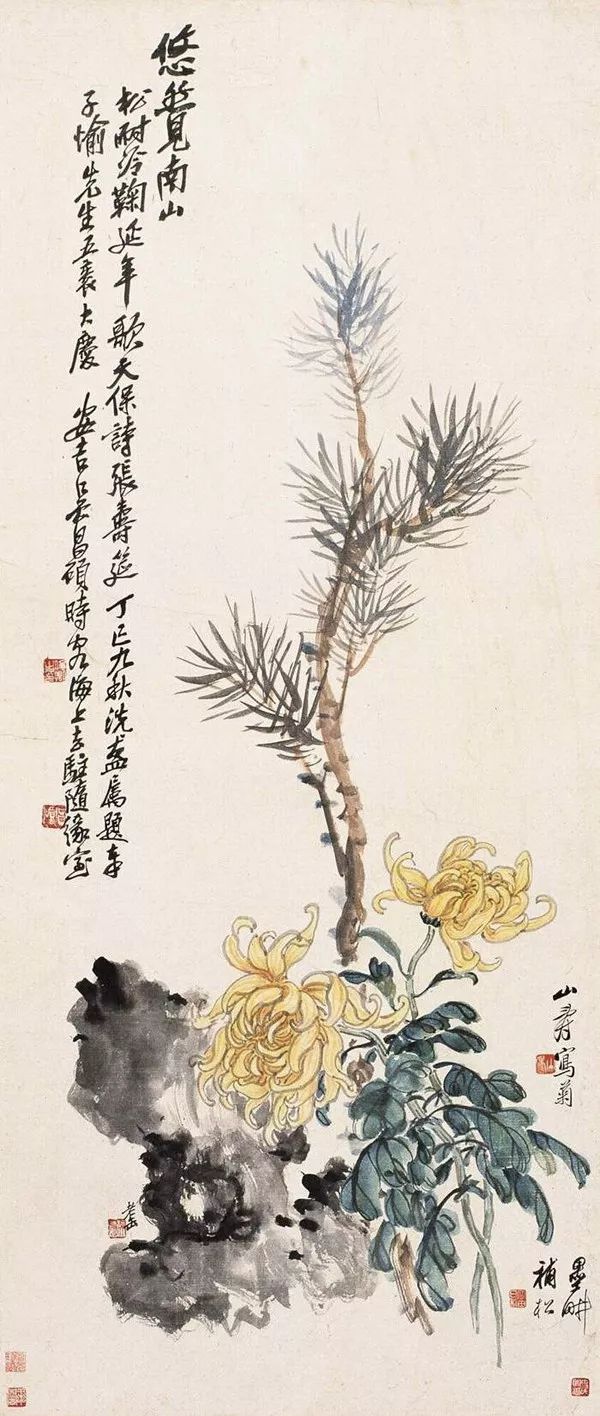 悠然見南山
松耐冷鞠延年歌天保詩張壽筵丁巳九秋洗盦屬題奉
子愉先生五袠大慶 安吉吳昌碩時客海上去駐隨緣室
山壽寫菊
墨畊
補松